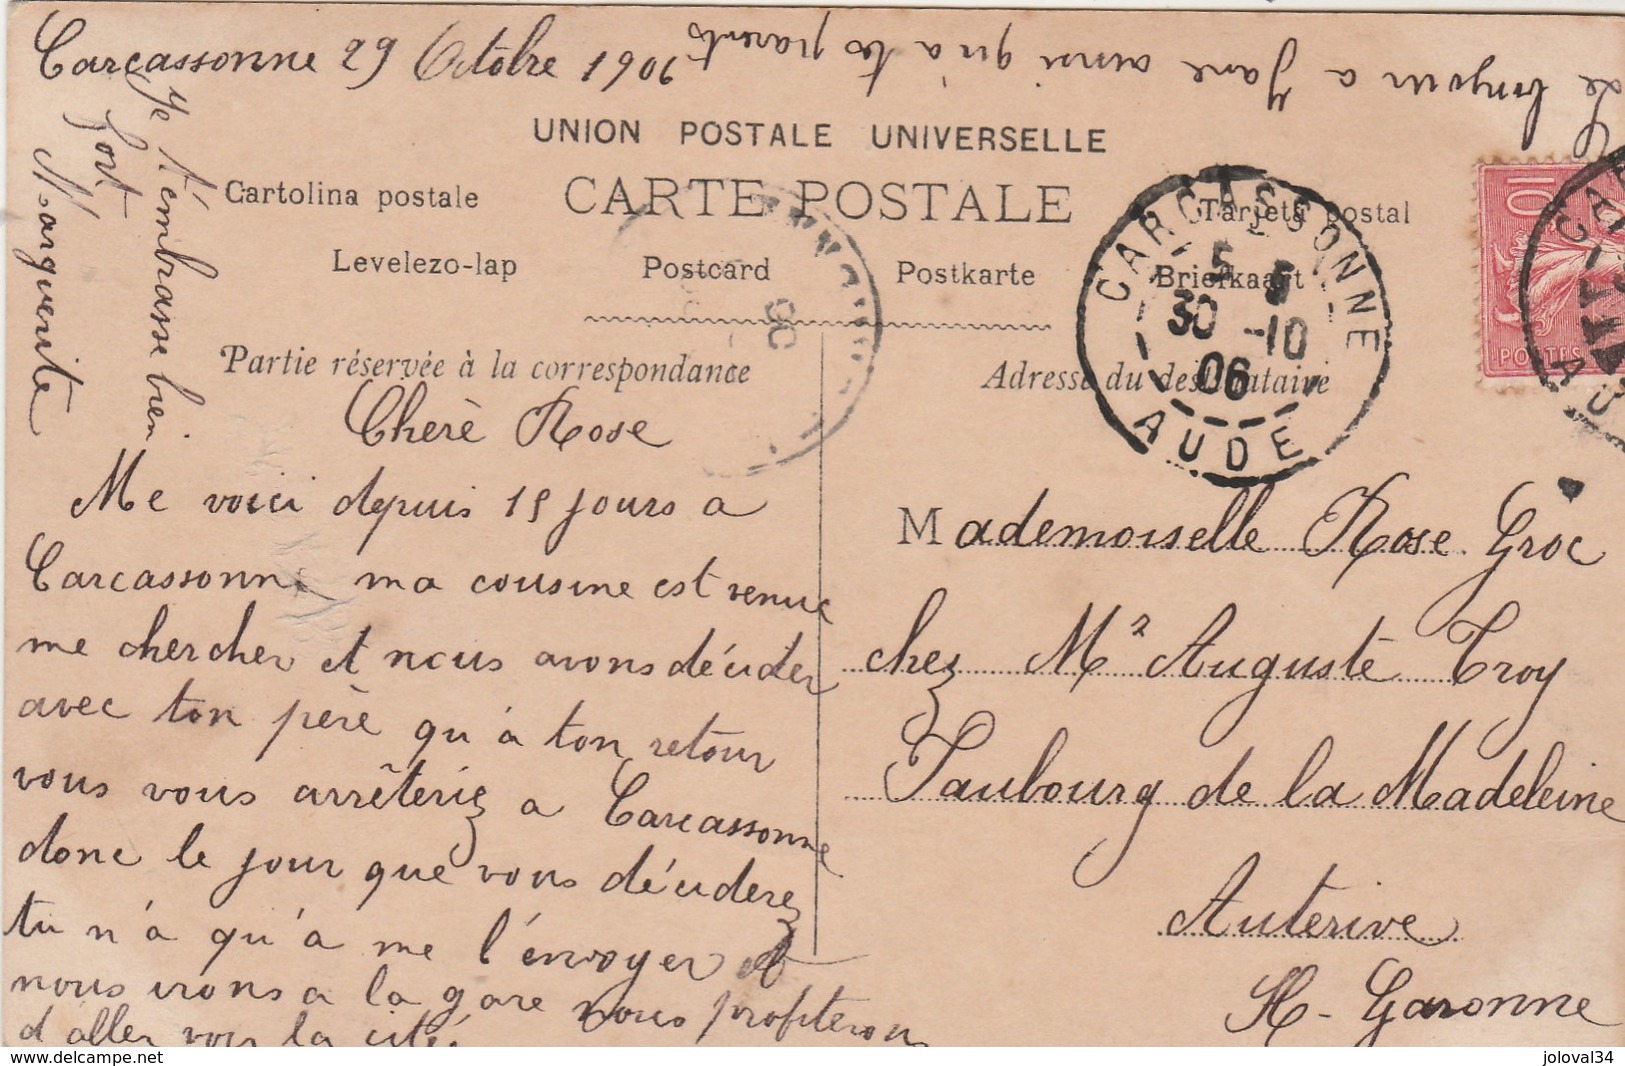 Carcassonne 29 Octobre 1906
Le bonjour a Jane ainsi qu'a tes parents
UNION POSTALE UNIVERSELLE
Cartolina postale
CARTE POSTALE
Tarjeta postal
Levelezo-lap
Postcard
Postkarte
Briefkaart
Partie réservée à la correspondance
Adresse du destinataire
CARCASSONNE
5 5
30 -10
06
AUDE
10
POSTES
Cherè Rose
Me voici depuis 15 jours a
Carcassonne ma cousine est venue
me chercher et nous avons décider
avec ton père qu'a ton retour
vous vous arrêteriez a Carcassonne
donc le jour que vous déciderez
tu n'a qu'a me l'envoyer et
nous irons a la gare nous profiterons
d'aller voir la cité.
Je t'embrasse bien
fort
Marguerite
Mademoiselle Rose Groc
chez Mr Auguste Troy
Faubourg de la Madeleine
Auterive
H-Garonne
joloval34